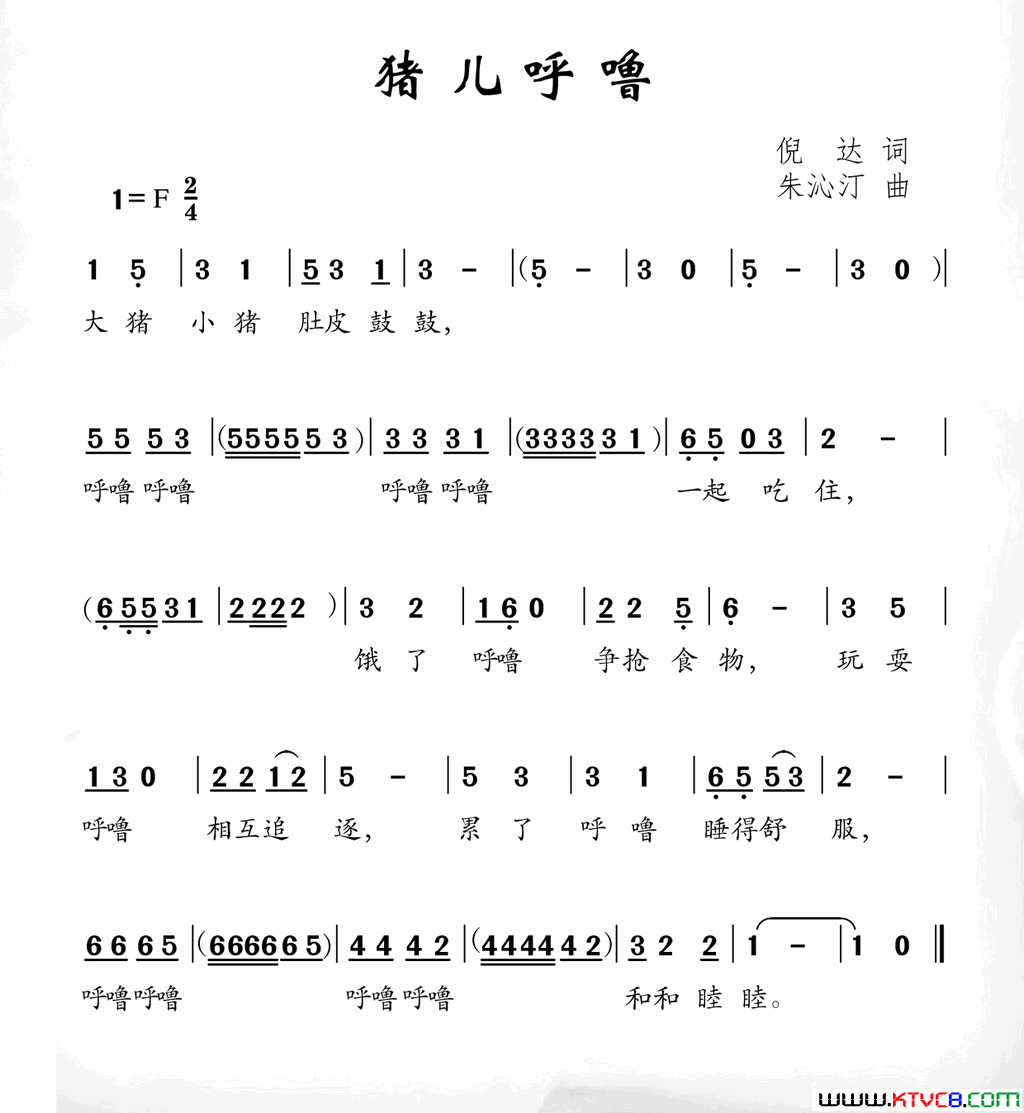 猪儿呼噜
倪 达 词
朱沁汀 曲
1=F 2/4
1 5 | 3 1 | 5 3 1 | 3 - | (5 - | 3 0 | 5 - | 3 0 ) |
大 猪 小 猪 肚皮 鼓 鼓,
5 5 5 3 | (5555 5 3 ) | 3 3 3 1 | (3333 3 1 ) | 6 5 0 3 | 2 - |
呼噜 呼噜 呼噜 呼噜 一起 吃 住,
( 6 5 5 3 1 | 2 2 2 2 ) | 3 2 | 1 6 0 | 2 2 5 | 6 - | 3 5 |
饿 了 呼噜 争 抢 食 物, 玩 耍
1 3 0 | 2 2 1 2 | 5 - | 5 3 | 3 1 | 6 5 5 3 | 2 - |
呼噜 相互追 逐, 累 了 呼 噜 睡得舒 服,
6 6 6 5 | (6666 6 5) | 4 4 4 2 | (4444 4 2) | 3 2 2 | 1 - | 1 0 ‖
呼噜呼噜 呼噜呼噜 和和 睦 睦。
www.KTVC8.com